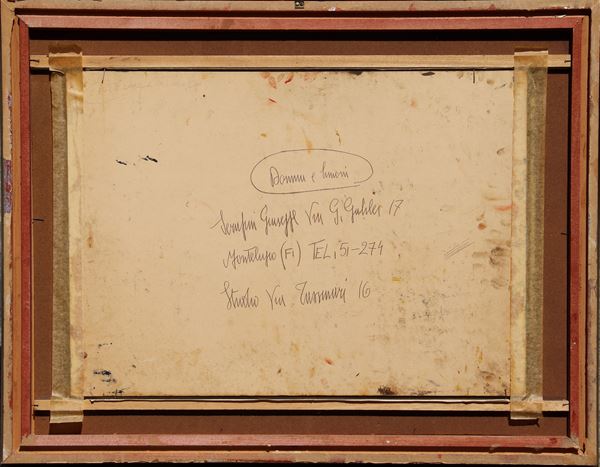 Donna e limoni
Serafini Giuseppe Via G. Galilei 17
Montelupo (FI) TEL. 51-274
Studio Via 16